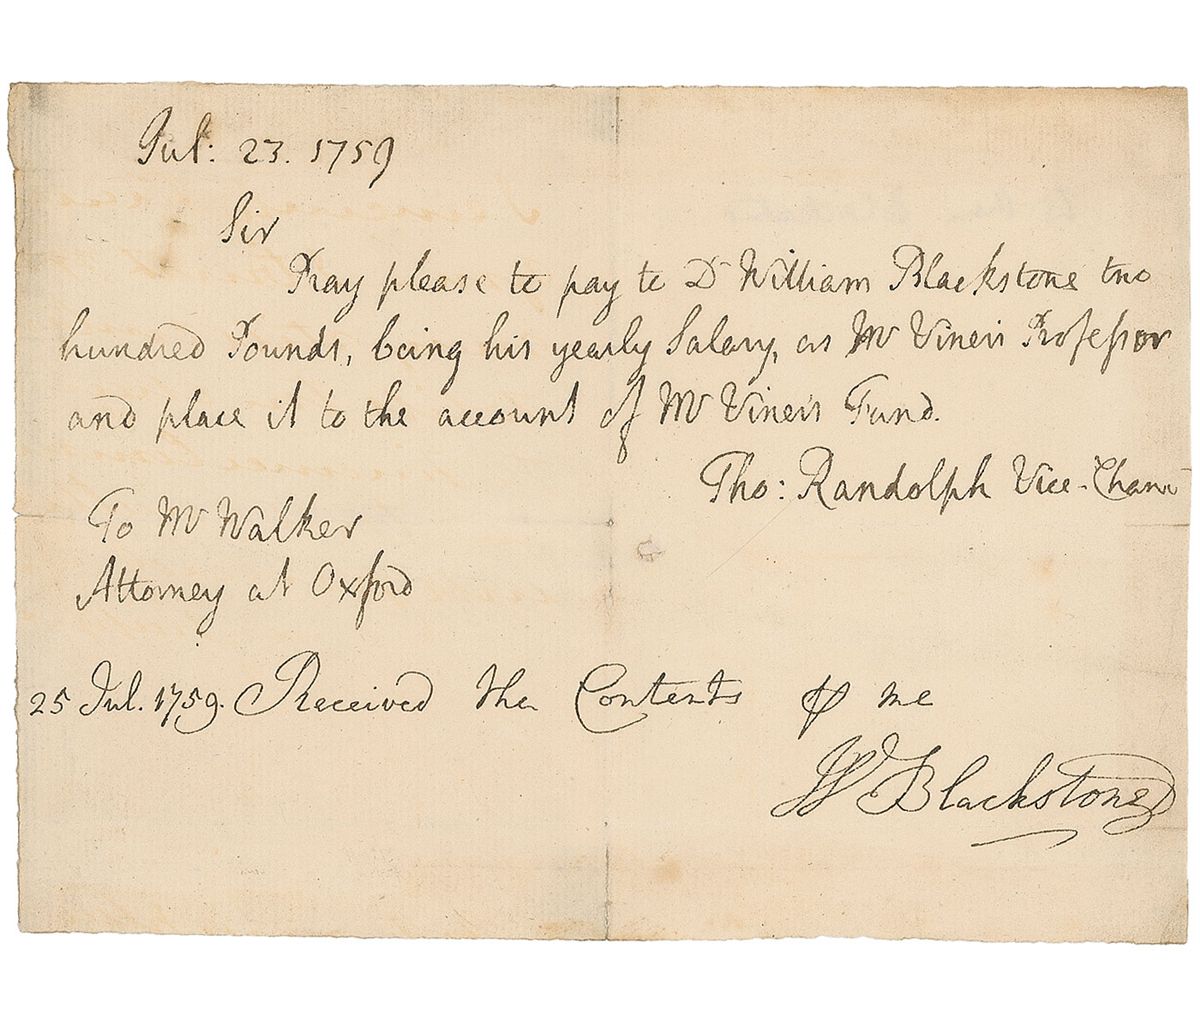 Jul: 23. 1759
Sir
Pray please to pay to Dr William Blackstone two
hundred Pounds, being his yearly Salary, as Mr Viner's Professor
and place it to the account of Mr Viner's Fund.
Tho: Randolph Vice-Chanr
To Mr Walker
Attorney at Oxford
25 Jul. 1759. Received the Contents ⅌ me
W Blackstone